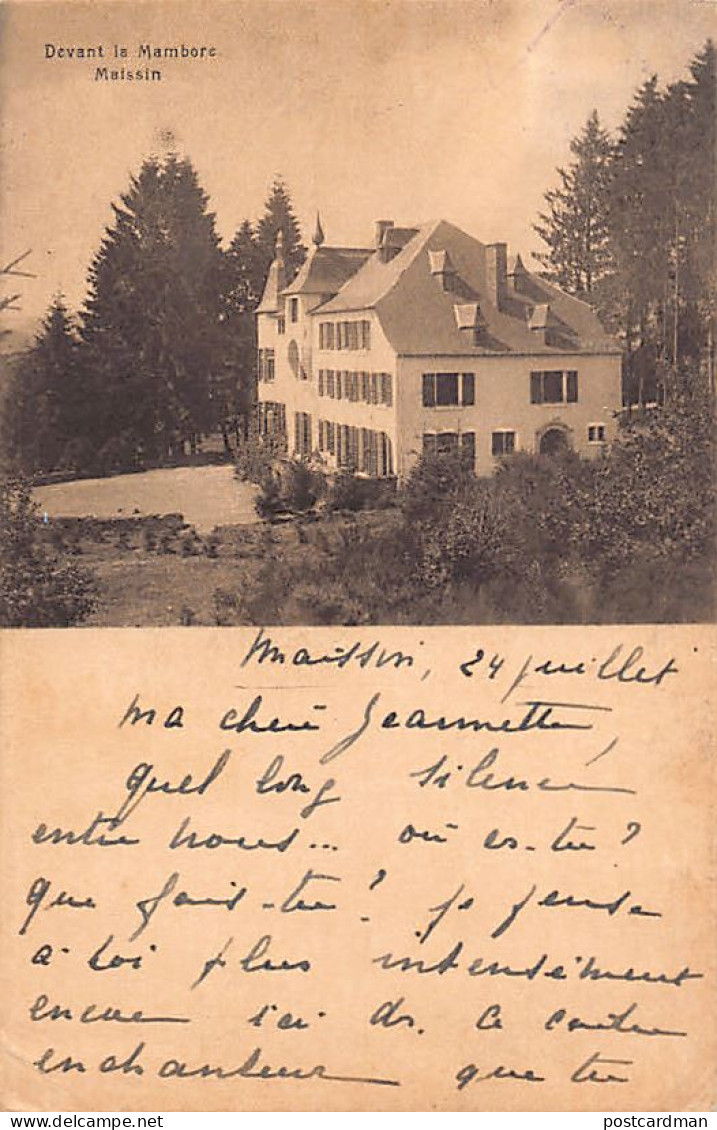 Devant la Mambore
Maissin
Maissin, 24 juillet
Ma chère Jeannette,
quel long silence
entre nous... où es-tu?
que fais-tu? je pense
à toi plus intensément
encore ici ds. ce
enchanteur que tu
postcardman